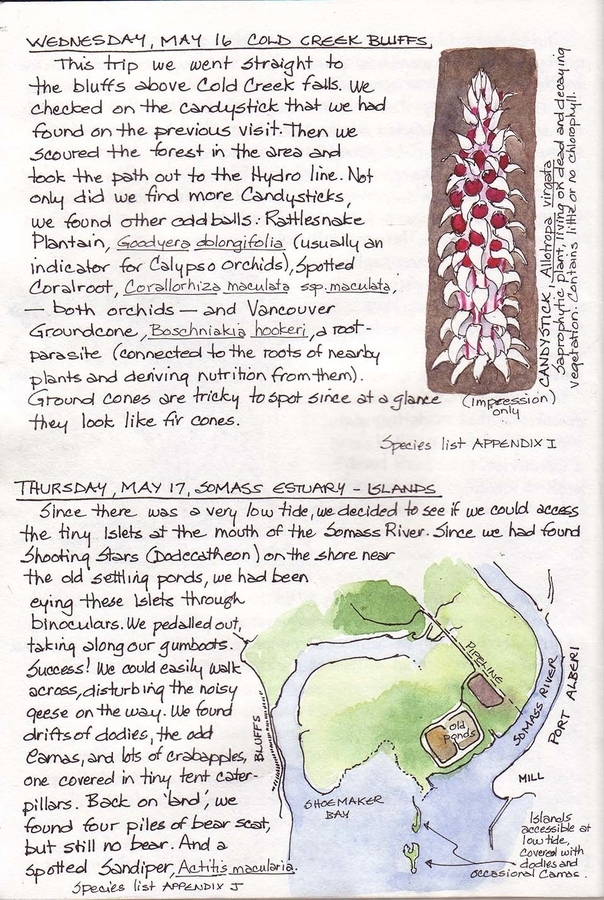 WEDNESDAY, MAY 16 COLD CREEK BLUFFS,
This trip we went straight to
the bluffs above Cold Creek falls. We
checked on the candystick that we had
found on the previous visit. Then we
scoured the forest in the area and
took the path out to the Hydro line. Not
only did we find more Candysticks,
we found other oddballs: Rattlesnake
Plantain, Goodyera oblongifolia (usually an
indicator for Calypso orchids), Spotted
Coralroot, Corallorhiza maculata ssp. maculata,
— both orchids — and Vancouver
Groundcone, Boschniakia hookeri, a root-
parasite (connected to the roots of nearby
plants and deriving nutrition from them).
Ground cones are tricky to spot since at a glance
they look like fir cones.
CANDYSTICK, Allotropa virgata
Saprophytic plant, living on dead and decaying
vegetation. Contains little or no chlorophyll.
(Impression)
only
Species list APPENDIX I
THURSDAY, MAY 17, SOMASS ESTUARY - ISLANDS
Since there was a very low tide, we decided to see if we could access
the tiny islets at the mouth of the Somass River. Since we had found
Shooting Stars (Dodecatheon) on the shore near
the old settling ponds, we had been
eying these islets through
binoculars. We pedalled out,
taking along our gumboots.
Success! We could easily walk
across, disturbing the noisy
geese on the way. We found
drifts of dodies, the odd
Camas, and lots of crabapples,
one covered in tiny tent cater-
pillars. Back on 'land', we
found four piles of bear scat,
but still no bear. And a
spotted Sandiper, Actitis macularia.
Species list APPENDIX J
PIPELINE
old
ponds
BLUFFS
SOMASS RIVER
PORT ALBERI
MILL
SHOEMAKER
BAY
Islands
accessible at
low tide,
covered with
dodies and
occasional Camas.